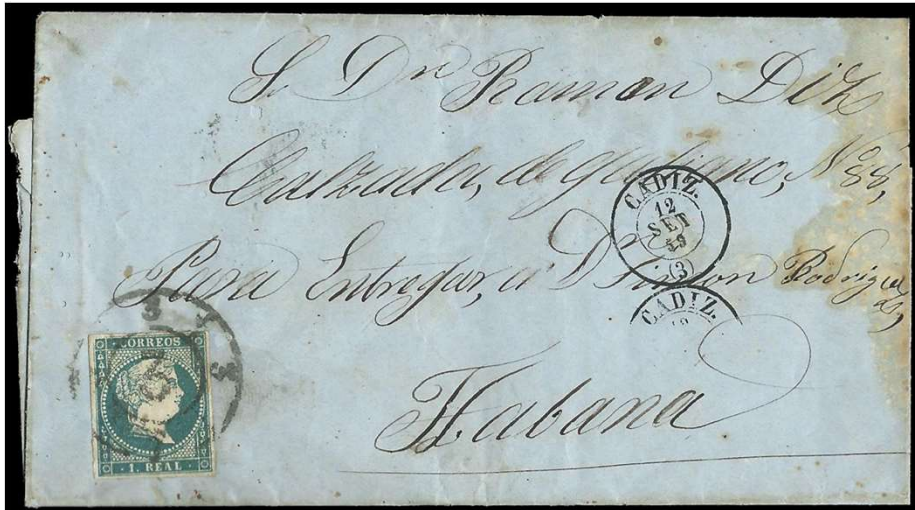 S. Dn Ramon Diz
Calzada, de galiano, Nº 88,
Para Entregar, a Dn Simon Rodriguez
Habana
CADIZ.
12
SET
59
(3)
CADIZ.
CORREOS
1. REAL